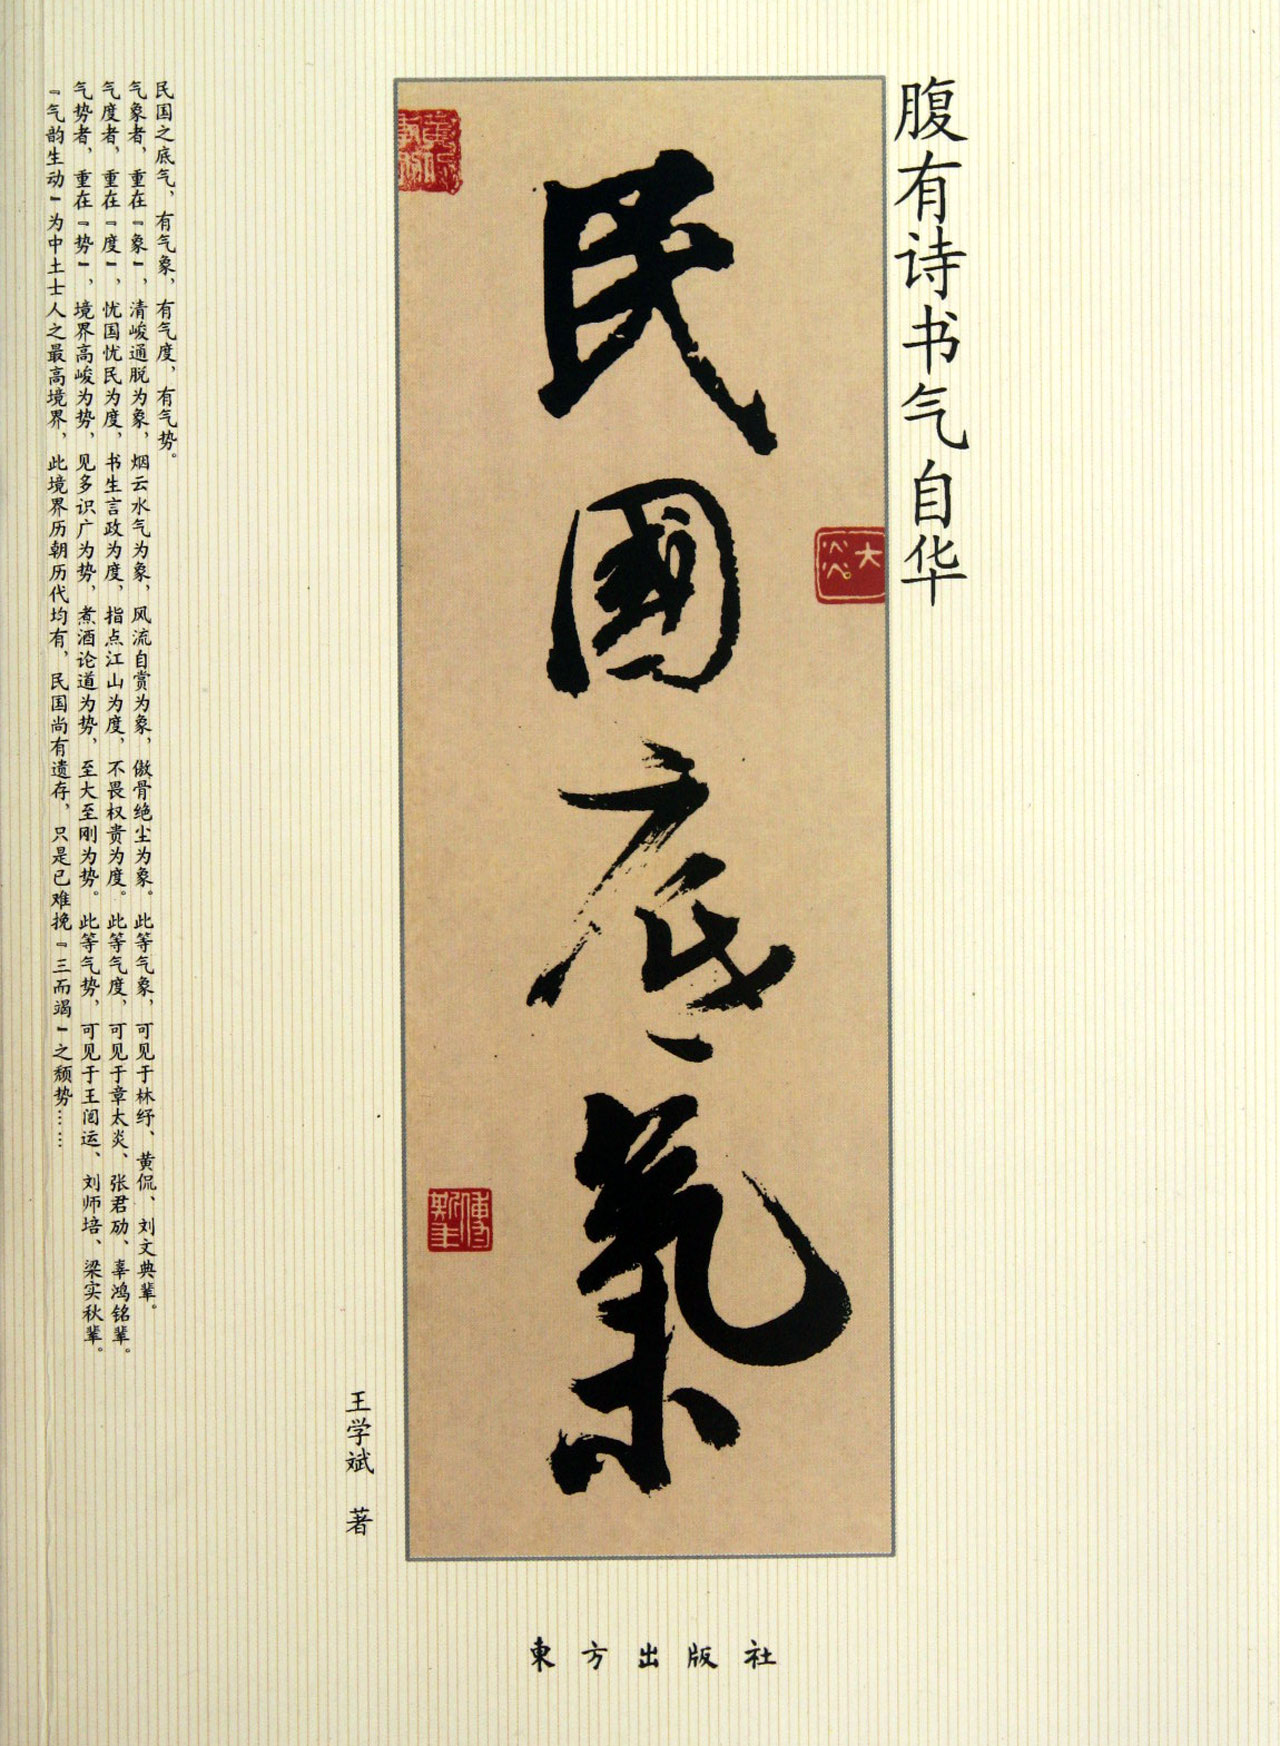 腹有诗书气自华
民國底氣
民国之底气，有气象，有气度，有气势。
气象者，重在『象』，清峻通脱为象，烟云水气为象，风流自赏为象，傲骨绝尘为象。此等气象，可见于林纾、黄侃、刘文典辈。
气度者，重在『度』，忧国忧民为度，书生言政为度，指点江山为度，不畏权贵为度。此等气度，可见于章太炎、张君劢、辜鸿铭辈。
气势者，重在『势』，境界高峻为势，见多识广为势，煮酒论道为势，至大至刚为势。此等气势，可见于王闿运、刘师培、梁实秋辈。
『气韵生动』为中土士人之最高境界，此境界历朝历代均有，民国尚有遗存，只是已难挽『三而竭』之颓势……
王学斌 著
東方出版社